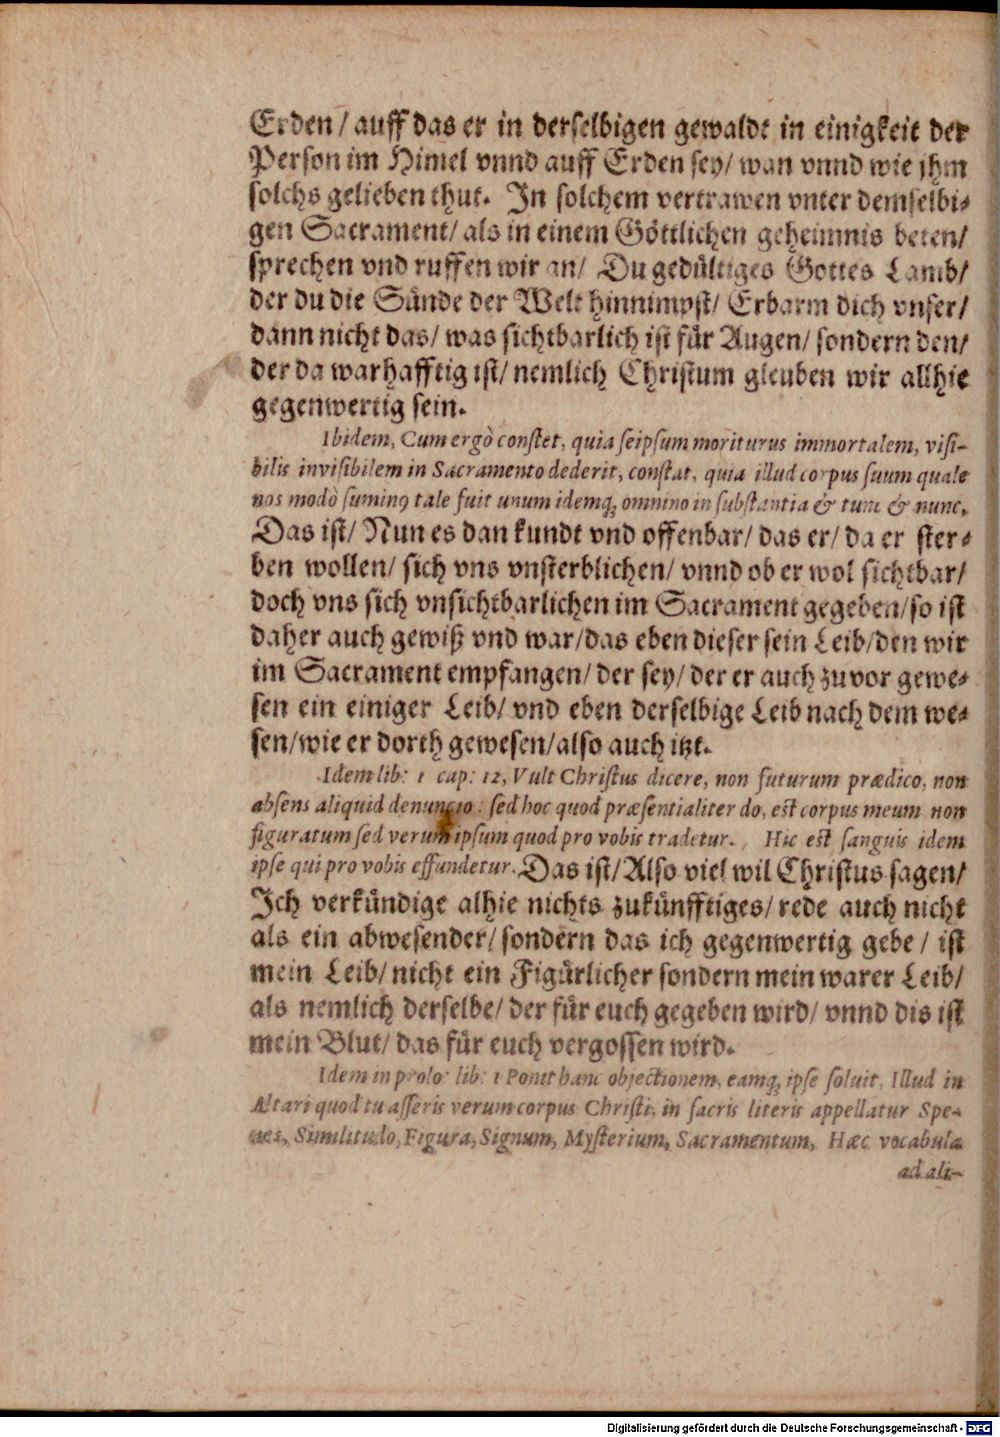 Erden / auff das er in derselbigen gewaldt in einigkeit der
Person im Himel vnnd auff Erden sey/ wan vnnd wie jhm
solchs gelieben thut. In solchem vertrawen vnter demselbi-
gen Sacrament/ als in einem Göttlichen geheimnis beten/
sprechen vnd ruffen wir an/ Du gedültiges Gottes Lamb/
der du die Sünde der Welt hinnimpst/ Erbarm dich vnser/
dann nicht das/ was sichtbarlich ist für Augen/ sondern den/
der da warhafftig ist/ nemlich Christum gleuben wir allhie
gegenwertig sein.
Ibidem, Cum ergò constet, quia seipsum moriturus immortalem, visi-
bilis invisibilem in Sacramento dederit, constat, quia illud corpus suum quale
nos modò sumimꝰ tale fuit unum idemq́; omnino in substantia & tunc & nunc.
Das ist/ Nun es dan kundt vnd offenbar/ das er/ da er ster-
ben wollen/ sich vns vnsterblichen/ vnnd ob er wol sichtbar/
doch vns sich vnsichtbarlichen im Sacrament gegeben/so ist
daher auch gewiß vnd war/das eben dieser sein Leib/den wir
im Sacrament empfangen/ der sey/ der er auch zuvor gewe-
sen ein einiger Leib/ vnd eben derselbige Leib nach dem we-
sen/wie er dorth gewesen/also auch itzt.
Idem lib: 1 cap: 12, Vult Christus dicere, non futurum prædico, non
absens aliquid denuncio: sed hoc quod præsentialiter do, est corpus meum non
figuratum sed verum ipsum quod pro vobis tradetur. Hic est sanguis idem
ipse qui pro vobis effundetur. Das ist/ Also viel wil Christus sagen/
Ich verkündige alhie nichts zukünfftiges/ rede auch nicht
als ein abwesender/ sondern das ich gegenwertig gebe / ist
mein Leib/ nicht ein Figürlicher sondern mein warer Leib/
als nemlich derselbe/ der für euch gegeben wird/ vnnd dis ist
mein Blut/ das für euch vergossen wird.
Idem in prolo: lib: 1 Ponit hanc objectionem, eamq́; ipse soluit, Illud in
Altari quod tu asseris verum corpus Christi, in sacris literis appellatur Spe-
cies, Similitudo, Figura, Signum, Mysterium, Sacramentum, Hæc vocabula
ad ali-
Digitalisierung gefördert durch die Deutsche Forschungsgemeinschaft - DFG